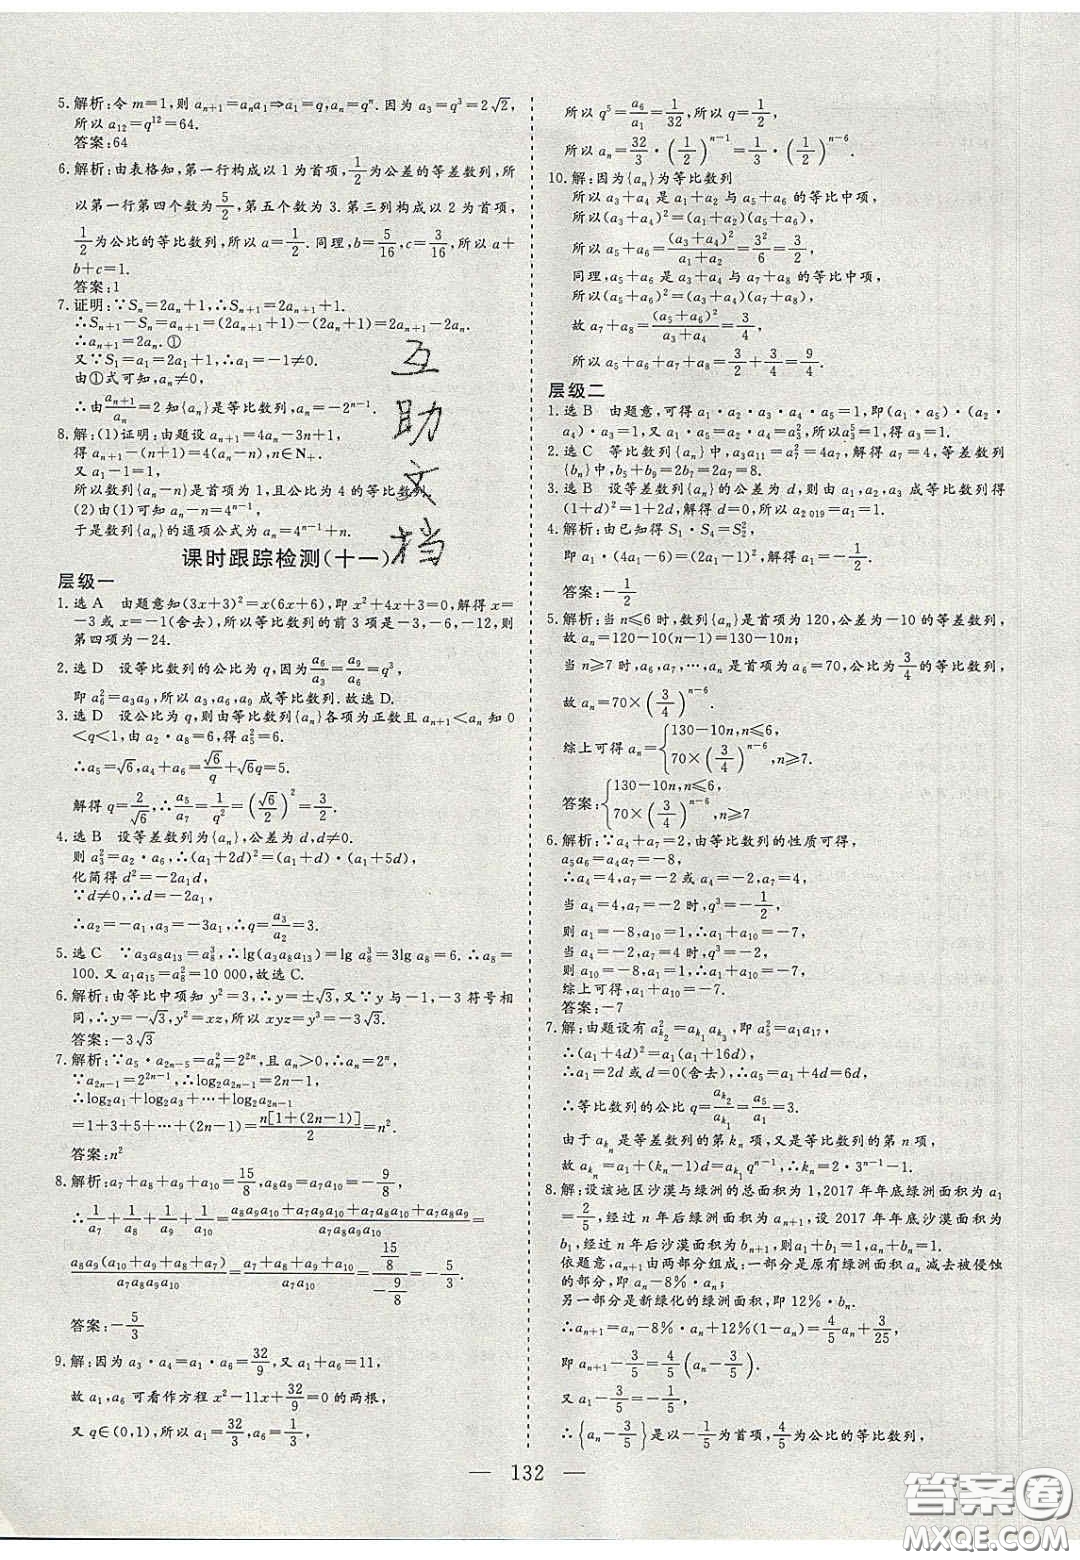 5.解析:令 m=1,则 aₙ₊₁=aₙa₁⇒a₁=q,aₙ=qⁿ.因为 a₃=q³=2√2,
所以 a₁₂=q¹²=64.
答案:64
6.解析:由表格知,第一行构成以 1 为首项,1/2为公差的等差数列,所
以第一行第四个数为5/2,第五个数为 3.第三列构成以 2 为首项,
1/2为公比的等比数列,所以 a=1/2.同理,b=5/16,c=3/16,所以 a+
b+c=1.
答案:1
7.证明:∵Sₙ=2aₙ+1,∴Sₙ₊₁=2aₙ₊₁+1.
∴Sₙ₊₁-Sₙ=aₙ₊₁=(2aₙ₊₁+1)-(2aₙ+1)=2aₙ₊₁-2aₙ.
∴aₙ₊₁=2aₙ.①
又∵S₁=a₁=2a₁+1,∴a₁=-1≠0.
由①式可知,aₙ≠0,
∴由aₙ₊₁/aₙ=2 知{aₙ}是等比数列,aₙ=-2ⁿ⁻¹.
8.解:(1)证明:由题设 aₙ₊₁=4aₙ-3n+1,
得 aₙ₊₁-(n+1)=4(aₙ-n),n∈N₊.
又 a₁-1=1,
所以数列{aₙ-n}是首项为 1,且公比为 4 的等比数列.
(2)由(1)可知 aₙ-n=4ⁿ⁻¹,
于是数列{aₙ}的通项公式为 aₙ=4ⁿ⁻¹+n.
课时跟踪检测(十一)
层级一
1.选 A 由题意知(3x+3)²=x(6x+6),即 x²+4x+3=0,解得 x=
-3或 x=-1(舍去),所以等比数列的前 3 项是-3,-6,-12,则
第四项为-24.
2.选 D 设等比数列的公比为 q,因为a₆/a₃=a₉/a₆=q³,
即 a₆²=a₃a₉,所以 a₃,a₆,a₉ 成等比数列.故选 D.
3.选 D 设公比为 q,则由等比数列{aₙ}各项为正数且 aₙ₊₁<aₙ 知 0
<q<1,由 a₂·a₈=6,得 a₅²=6.
∴a₅=√6,a₄+a₆=√6/q+√6q=5.
解得 q=2/√6,∴a₅/a₇=1/q²=(√6/2)²=3/2.
4.选 B 设等差数列为{aₙ},公差为 d,d≠0.
则 a₃²=a₂·a₆,∴(a₁+2d)²=(a₁+d)(a₁+5d),
化简得 d²=-2a₁d,
∵d≠0,∴d=-2a₁,
∴a₂=-a₁,a₃=-3a₁,∴q=a₃/a₂=3.
5.选 C ∵a₃a₈a₁₃=a₈³,∴lg(a₃a₈a₁₃)=lg a₈³=3lg a₈=6.∴a₈=
100.又 a₁a₁₅=a₈²=10 000,故选 C.
6.解析:由等比中项知 y²=3,∴y=±√3,又∵y 与-1,-3 符号相
同,∴y=-√3,y²=xz,所以 xyz=y³=-3√3.
答案:-3√3
7.解析:∵a₅·a₂ₙ₋₅=aₙ²=2²ⁿ,且 aₙ>0,∴aₙ=2ⁿ,
∵a₂ₙ₋₁=2²ⁿ⁻¹,∴log₂a₂ₙ₋₁=2n-1,
∴log₂a₁+log₂a₃+…+log₂a₂ₙ₋₁
=1+3+5+…+(2n-1)=n[1+(2n-1)]/2=n².
答案:n²
8.解析:a₇+a₈+a₉+a₁₀=15/8,a₈a₉=a₇a₁₀=-9/8,
∴1/a₇+1/a₈+1/a₉+1/a₁₀=(a₈a₉a₁₀+a₇a₉a₁₀+a₇a₈a₁₀+a₇a₈a₉)/(a₇a₈a₉a₁₀)=
a₈a₉(a₁₀+a₉+a₈+a₇)/(a₇a₈a₉a₁₀)=(a₇+a₈+a₉+a₁₀)/(a₇a₁₀)=(15/8)/(-9/8)=-5/3.
答案:-5/3
9.解:因为 a₃·a₄=a₁·a₆=32/9,又 a₁+a₆=11,
故 a₁,a₆ 可看作方程 x²-11x+32/9=0 的两根,
又 q∈(0,1),所以 a₁=32/3,a₆=1/3,
所以 q⁵=a₆/a₁=1/32,所以 q=1/2,
所以 aₙ=32/3·(1/2)ⁿ⁻¹=1/3·(1/2)ⁿ⁻⁶.
10.解:因为{aₙ}为等比数列
所以 a₃+a₄ 是 a₁+a₂ 与 a₅+a₆ 的等比中项,
所以(a₃+a₄)²=(a₁+a₂)(a₅+a₆),
所以 a₅+a₆=(a₃+a₄)²/(a₁+a₂)=3²/6=3/2,
同理,a₅+a₆ 是 a₃+a₄ 与 a₇+a₈ 的等比中项,
所以(a₅+a₆)²=(a₃+a₄)(a₇+a₈),
故 a₇+a₈=(a₅+a₆)²/(a₃+a₄)=3/4,
所以 a₅+a₆+a₇+a₈=3/2+3/4=9/4.
层级二
1.选 B 由题意,可得 a₁·a₂·a₃·a₄·a₅=1,即(a₁·a₅)·(a₂·
a₄)·a₃=1,又 a₁·a₅=a₂·a₄=a₃²,所以a₃⁵=1,得 a₃=1.
2.选 C 等比数列{aₙ}中,a₃a₁₁=a₇²=4a₇,解得 a₇=4,等差数列
{bₙ}中,b₅+b₉=2b₇=2a₇=8.
3.选 B 设等差数列{aₙ}的公差为 d,则由 a₁,a₂,a₃ 成等比数列得
(1+d)²=1+2d,解得 d=0,所以 a₂ ₀₁₉=a₁=1.
4.解析:由已知得 S₁·S₄=S₂²,
即 a₁·(4a₁-6)=(2a₁-1)²,解得 a₁=-1/2.
答案:-1/2
5.解析:当 n≤6 时,数列{aₙ}是首项为120,公差为-10 的等差数列,
故 aₙ=120-10(n-1)=130-10n;
当 n≥7 时,a₆,a₇,…,aₙ 是首项为 a₆=70,公比为3/4的等比数列,
故 aₙ=70×(3/4)ⁿ⁻⁶.
综上可得 aₙ={130-10n,n≤6,
70×(3/4)ⁿ⁻⁶,n≥7.
答案:{130-10n,n≤6,
70×(3/4)ⁿ⁻⁶,n≥7
6.解析:∵a₄+a₇=2,由等比数列的性质可得,
a₅a₆=a₄a₇=-8,
∴a₄=4,a₇=-2 或 a₄=-2,a₇=4,
当 a₄=4,a₇=-2 时,q³=-1/2,
则 a₁=-8,a₁₀=1,∴a₁+a₁₀=-7,
当 a₄=-2,a₇=4 时,q³=-2,
则 a₁₀=-8,a₁=1,∴a₁+a₁₀=-7,
综上可得,a₁+a₁₀=-7.
答案:-7
7.解:由题设有 aₖ₂²=aₖ₁aₖ₃,即 a₅²=a₁a₁₇,
∴(a₁+4d)²=a₁(a₁+16d),
∴a₁=2d 或 d=0(舍去),∴a₅=a₁+4d=6d,
∴等比数列的公比 q=aₖ₂/aₖ₁=a₅/a₁=3.
由于 aₖₙ 是等差数列的第 kₙ 项,又是等比数列的第 n 项,
故 aₖₙ=a₁+(kₙ-1)d=aₖ₁qⁿ⁻¹,∴kₙ=2·3ⁿ⁻¹-1.
8.解:设该地区沙漠与绿洲的总面积为 1,2017 年年底绿洲面积为 a₁
=2/5,经过 n 年后绿洲面积为 aₙ₊₁,设 2017 年年底沙漠面积为
b₁,经过 n 年后沙漠面积为 bₙ₊₁,则a₁+b₁=1,aₙ+bₙ=1.
依题意,aₙ₊₁由两部分组成:一部分是原有绿洲面积 aₙ 减去被侵蚀
的部分,即 aₙ-8%·aₙ;
另一部分是新绿化的绿洲面积,即 12%·bₙ.
∴aₙ₊₁=aₙ-8%·aₙ+12%(1-aₙ)=4/5aₙ+3/25,
即 aₙ₊₁-3/5=4/5(aₙ-3/5).
又 a₁-3/5=-1/5,
∴{aₙ-3/5}是以-1/5为首项,4/5为公比的等比数列,
互
助
文
档
— 132 —
答案圈
MXQE.COM